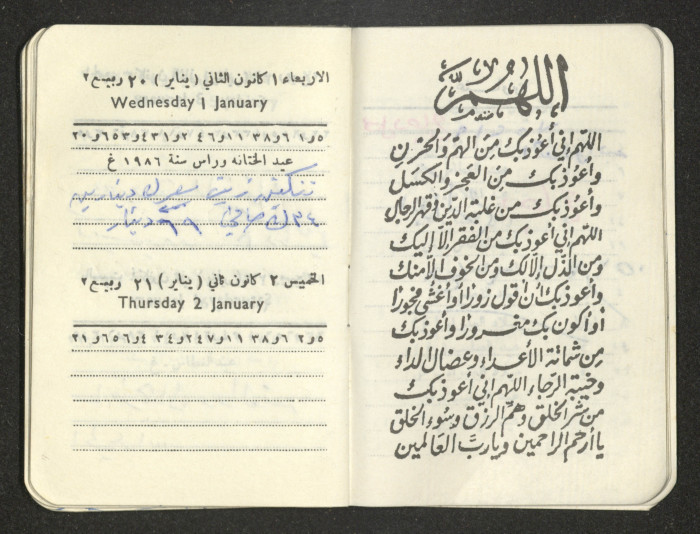 الاربعاء ١ كانون الثاني ( يناير ) ٢٠ ربيع ٢
Wednesday 1 January
٥ و ١ ٦ و ٣٨ ١١ و ٤٦ ٢ و ٣١ ٤ و ٥٣ ٦ و ٢٠
عيد الختانه وراس سنة ١٩٨٦ غ
زيت
٦٩ دينار
الخميس ٢ كانون ثاني ( يناير ) ٢١ ربيع ٢
Thursday 2 January
٥ و ٢ ٦ و ٣٨ ١١ و ٤٧ ٢ و ٣٤ ٤ و ٥٦ ٦ و ٢١
اللهم
اللهم إني أعوذ بك من الهم والحزن
وأعوذ بك من العجز والكسل
وأعوذ بك من غلبة الدين وقهر الرجال
اللهم إني أعوذ بك من الفقر إلا إليك
ومن الذل إلا لك ومن الخوف إلا منك
وأعوذ بك أن أقول زورا أو أغشى فجورا
أو أكون بك مغرورا وأعوذ بك
من شماتة الأعداء وعضال الداء
وخيبة الرجاء اللهم إني أعوذ بك
من شر الخلق وهم الرزق وسوء الخلق
يا أرحم الراحمين ويا رب العالمين